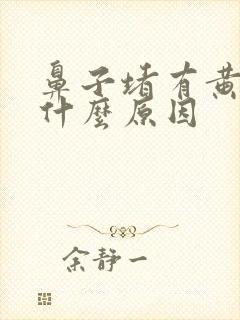 鼻子堵有黄
什麼原因
余静一